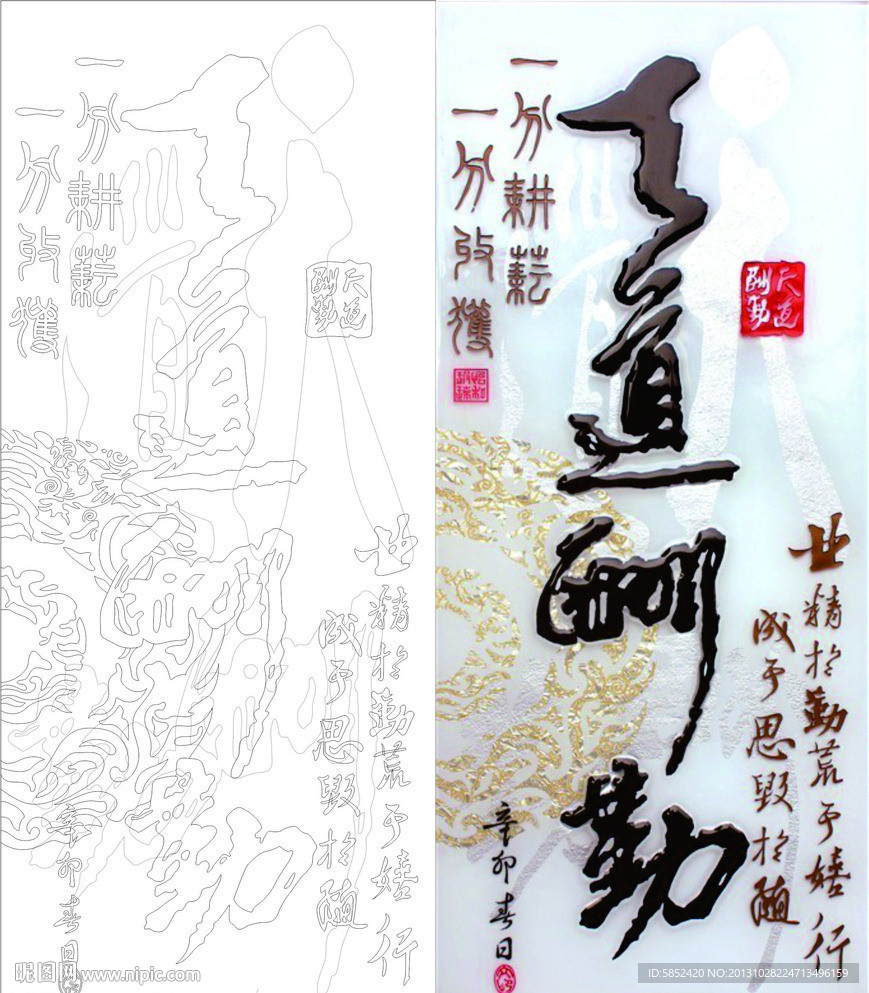 业精於勤荒于嬉行
成于思毁於随
天道酬勤
天道酬勤
一分耕耘
一分收獲
辛卯春日
业精於勤荒于嬉行
成于思毁於随
天道酬勤
天道酬勤
一分耕耘
一分收獲
辛卯春日
昵图网 www.nipic.com
ID:5852420 NO:20131028224713496159